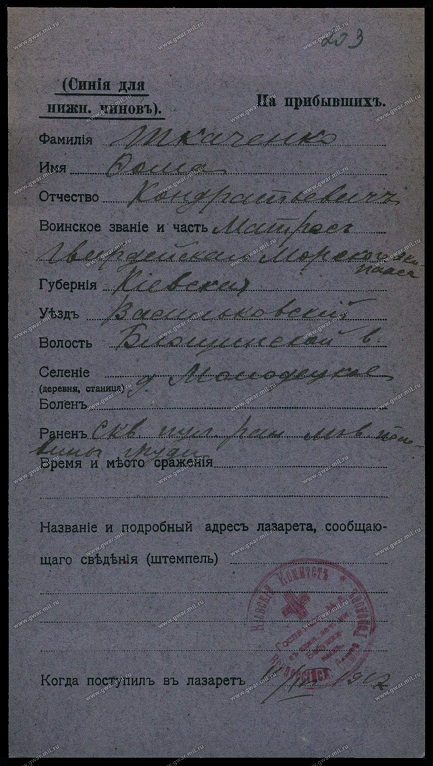 203
(Синія для
нижн. чиновъ).
На прибывшихъ.
Фамилія Ткаченко
Имя Фома
Отчество Кондратьевичъ
Воинское званіе и часть Матросъ
Гвардейскій Морской эки
пажъ
Губернія Кіевская
Уѣздъ Васильковскій
Волость в.
Селеніе д. Молодецкое
(деревня, станица)
Боленъ
Раненъ скв. пул. ран. поло
вины груди
Время и мѣсто сраженія
Названіе и подробный адресъ лазарета, сообщаю-
щаго свѣдѣнія (штемпель)
Кіевскій Комитетъ
Когда поступилъ въ лазаретъ 1917
www.gwar.mil.ru